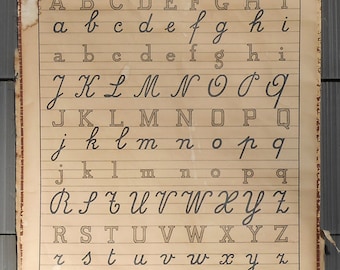 A B C D E F G H I
a b c d e f g h i
a b c d e f g h i
J K L M N O P Q
J K L M N O P Q
j k l m n o p q
j k l m n o p q
R S T U V W X Y Z
R S T U V W X Y Z
r s t u v w x y z